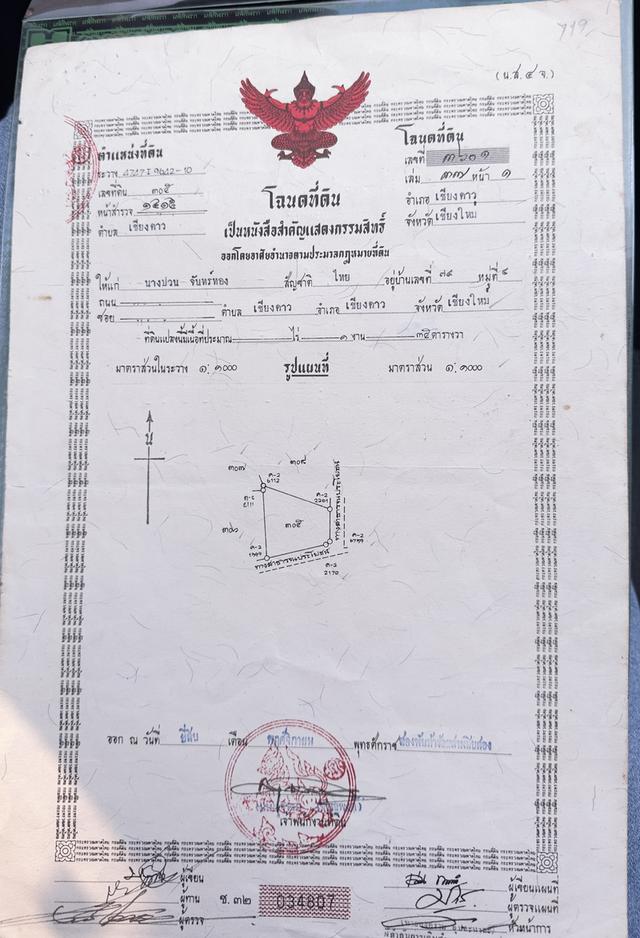 (น.ส. ๔ จ.)
ตำแหน่งที่ดิน
ระวาง 4747 I 9642-10
เลขที่ดิน ๓๐๕
หน้าสำรวจ ๑๕๑๕
ตำบล เชียงดาว
โฉนดที่ดิน
เลขที่ ๓๖๐๑
เล่ม ๓๗ หน้า ๑
อำเภอ เชียงดาว
จังหวัด เชียงใหม่
โฉนดที่ดิน
เป็นหนังสือสำคัญแสดงกรรมสิทธิ์
ออกโดยอาศัยอำนาจตามประมวลกฎหมายที่ดิน
ให้แก่ นางปวน จันทร์ทอง สัญชาติ ไทย อยู่บ้านเลขที่ ๗๙ หมู่ที่
ถนน
ซอย ตำบล เชียงดาว อำเภอ เชียงดาว จังหวัด เชียงใหม่
ที่ดินแปลงนี้มีเนื้อที่ประมาณ ไร่ ๑ งาน ๓๕ ตารางวา
มาตราส่วนในระวาง ๑:๑๐๐๐ รูปแผนที่ มาตราส่วน ๑:๑๐๐๐
น
๓๐๗
๓๐๙
ค-2
6112
ค-2
2201
๓๐๖
๓๐๕
ทางสาธารณประโยชน์
ค-2
ค-2
ทางสาธารณประโยชน์
ค-2
2170
ออก ณ วันที่ ยี่สิบ เดือน พฤศจิกายน พุทธศักราช สองพันห้าร้อยสามสิบสอง
เจ้าพนักงานที่ดิน
ผู้เขียน
ผู้ทาน
ผู้ตรวจ
ช. ๓๒
034807
ผู้เขียนแผนที่
ผู้ตรวจแผนที่
หัวหน้าการ